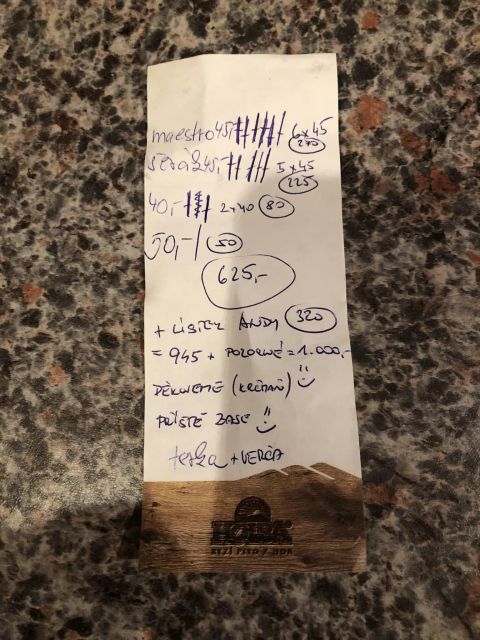 maestro 45,- 6x45
270
šerák 45,- 5x45
225
40,- 2x40 80
50,- / 50
625,-
+ LÍSTEK ANDY 320
= 945 + POZORNÉ = 1.000,-
DĚKUJEME (KRČMÁŘ)
PŘÍŠTĚ ZASE
terka + VERČA
HOLBA
RYZÍ PIVO Z HOR